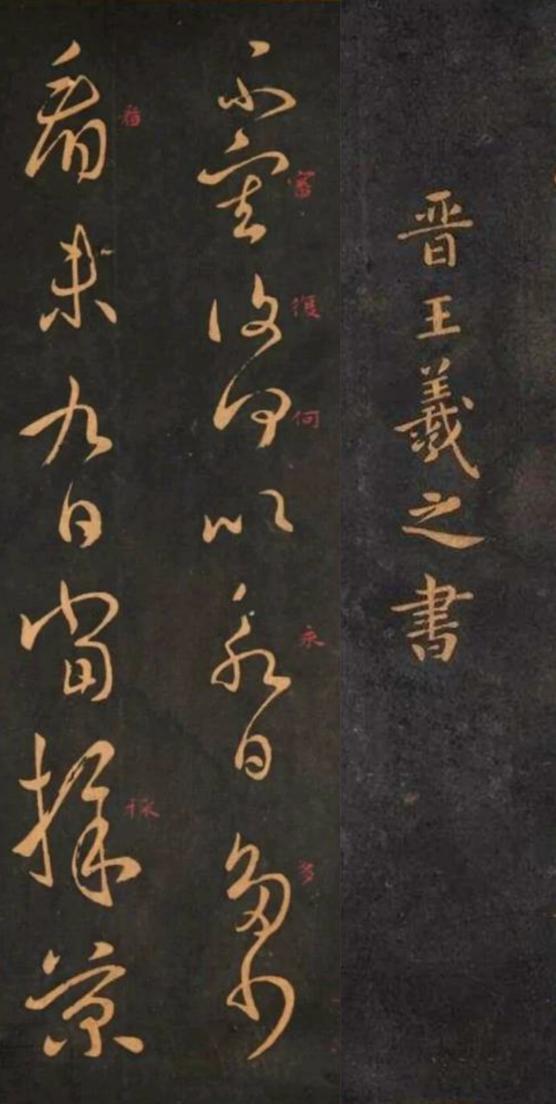 晋王羲之書
不審復何以永日多少
審
復
何
永
多
看未九日當採菊
採